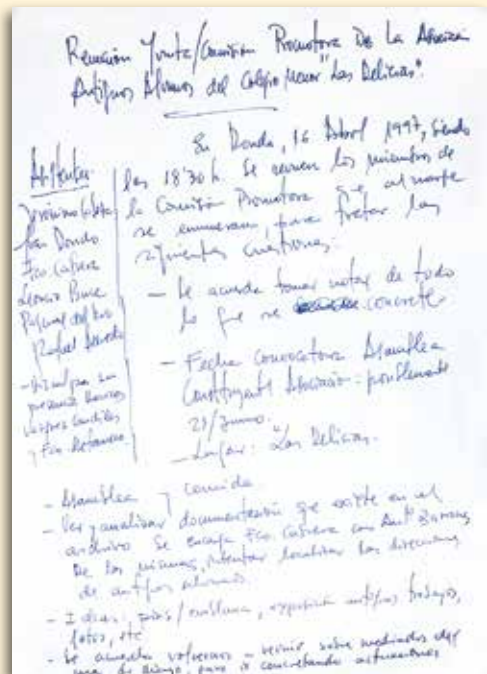 Reunión Junta/Comisión Promotora De La Asociac.
Antiguos Alumnos del Colegio Menor "Las Delicias".
Asistentes
Jerónimo
Juan Rondo
Fco. Cabrera
Leoncio
Pascual del Río
Rafael
- Disculpan su
presencia
y Fco.
En Ronda, 16 Abril 1997, siendo
las 18'30 h. Se reunen los miembros de
la Comisión Promotora que al margen
se enumeran, para tratar las
siguientes cuestiones:
- Se acuerda tomar notas de todo
lo que se concrete.
- Fecha convocatoria Asamblea
Constituyente Asociación: posiblemente
21/Junio.
- Lugar: "Las Delicias.
- Asamblea y comida
- Ver y analizar documentación que existe en el
archivo. Se encarga Fco. Cabrera con Antº
De los mismos, intentar localizar las direcciones
de antiguos alumnos.
- Ideas: , exposición antiguos trabajos,
fotos, etc
- Se acuerda volvernos a reunir sobre mediados del
mes de Mayo, para ir concretando actuaciones